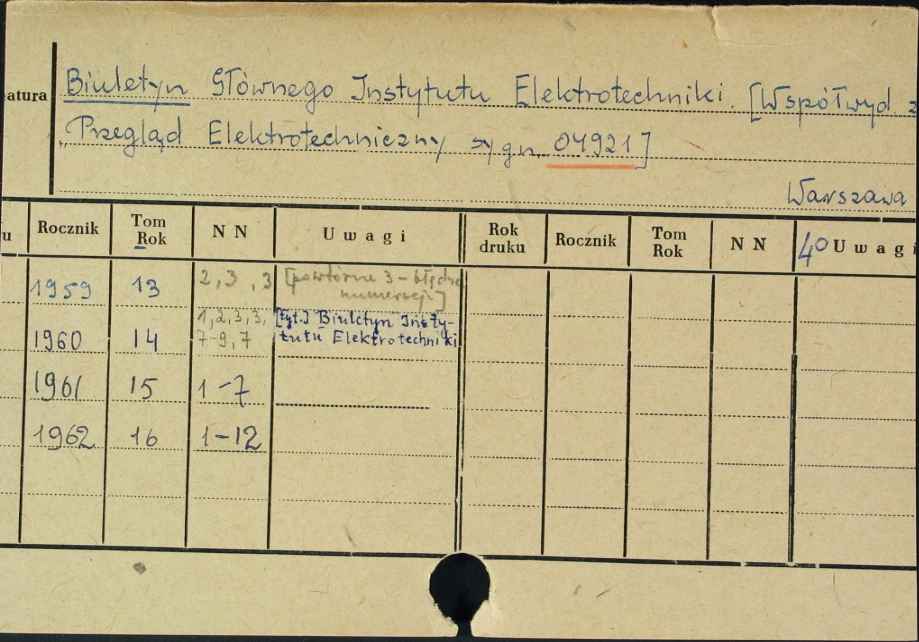 Biuletyn Głównego Instytutu Elektrotechniki. [Współwyd z
atura
Przegląd Elektrotechniczny sygn. 04921]
Warszawa
u Rocznik Tom Rok N N U w a g i Rok druku Rocznik Tom Rok N N 40 U w a g i
1959 13 2, 3, 3 [powtórne 3 - błędne
numeracji]
1960 14 1, 2, 3, 3, [tyt.] Biuletyn Insty-
7-9, 7 tutu Elektrotechniki
1961 15 1-7
1962 16 1-12